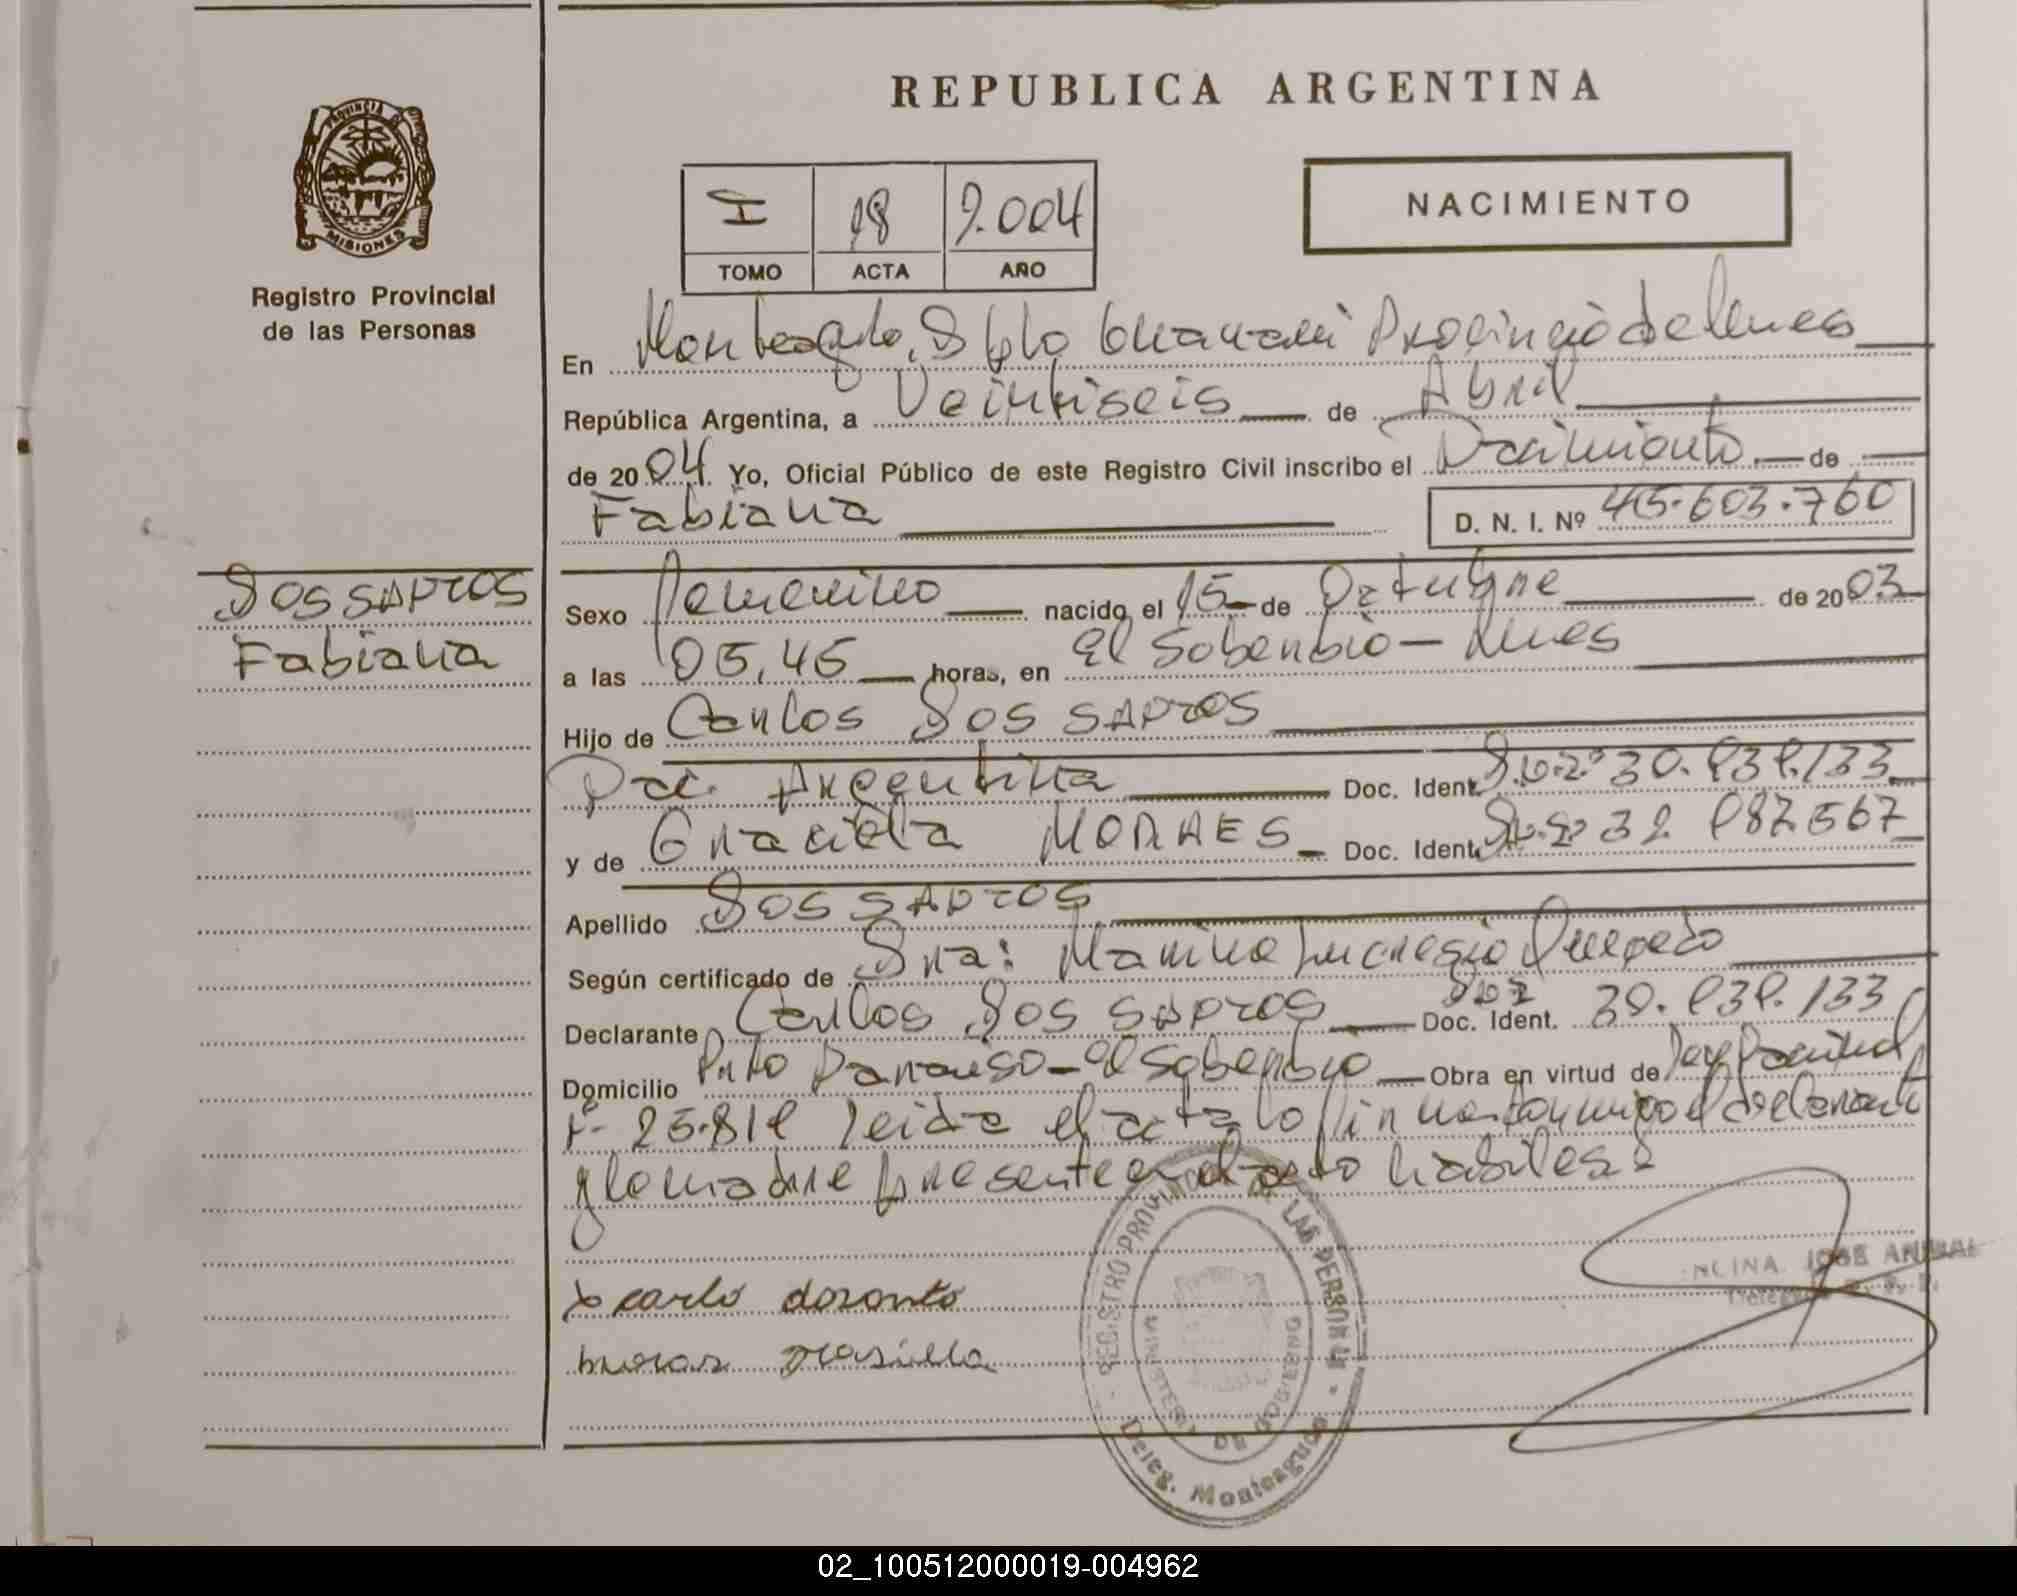 REPUBLICA ARGENTINA
PROVINCIA D
MISIONES
Registro Provincial
de las Personas
I 18 2.004
TOMO ACTA AÑO
NACIMIENTO
En Monteagudo, Dpto Guarani Provincia de Mnes
República Argentina, a Veintiseis de Abril
de 2004 Yo, Oficial Público de este Registro Civil inscribo el Nacimiento de
Fabiana
D. N. I. Nº 45.603.760
DOS SANTOS
Fabiana
Sexo Femenino nacido el 15 de Octubre de 2003
a las 05,45 horas, en El Soberbio - Mnes
Hijo de Carlos DOS SANTOS
Nac. Argentina Doc. Ident. 30.939.133
y de Graciela MORAES Doc. Ident. 32 987.567
Apellido DOS SANTOS
Según certificado de Sra: Marina
Declarante Carlos DOS SANTOS Doc. Ident. 30.939.133
Domicilio Pnto Paraiso - El Soberbio Obra en virtud de Ley Nacional
25.819 leida el acta lo firman conmigo el declarante
y la madre presente en el acto habiles
x carlo dosonto
REGISTRO PROVINCIAL DE LAS PERSONAS
MINISTERIO DE GOBIERNO
Deleg. Monteagudo
JOSE ANIBAL
02_100512000019-004962